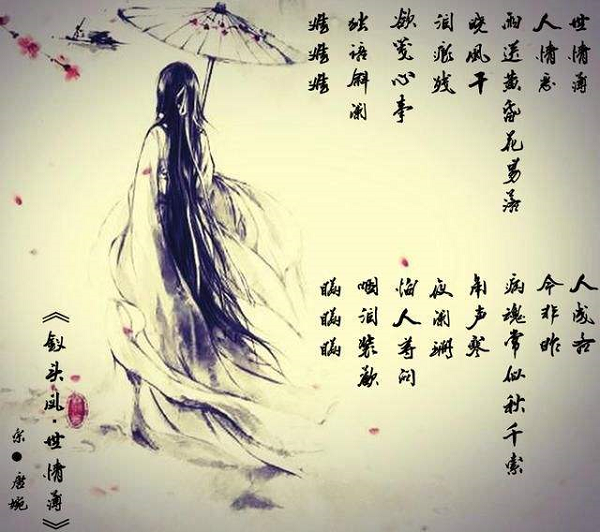 世情薄
人情恶
雨送黄昏花易落
晓风干
泪痕残
欲笺心事
独语斜阑
难难难
人成各
今非昨
病魂常似秋千索
角声寒
夜阑珊
怕人寻问
咽泪装欢
瞒瞒瞒
《钗头凤·世情薄》
宋●唐婉